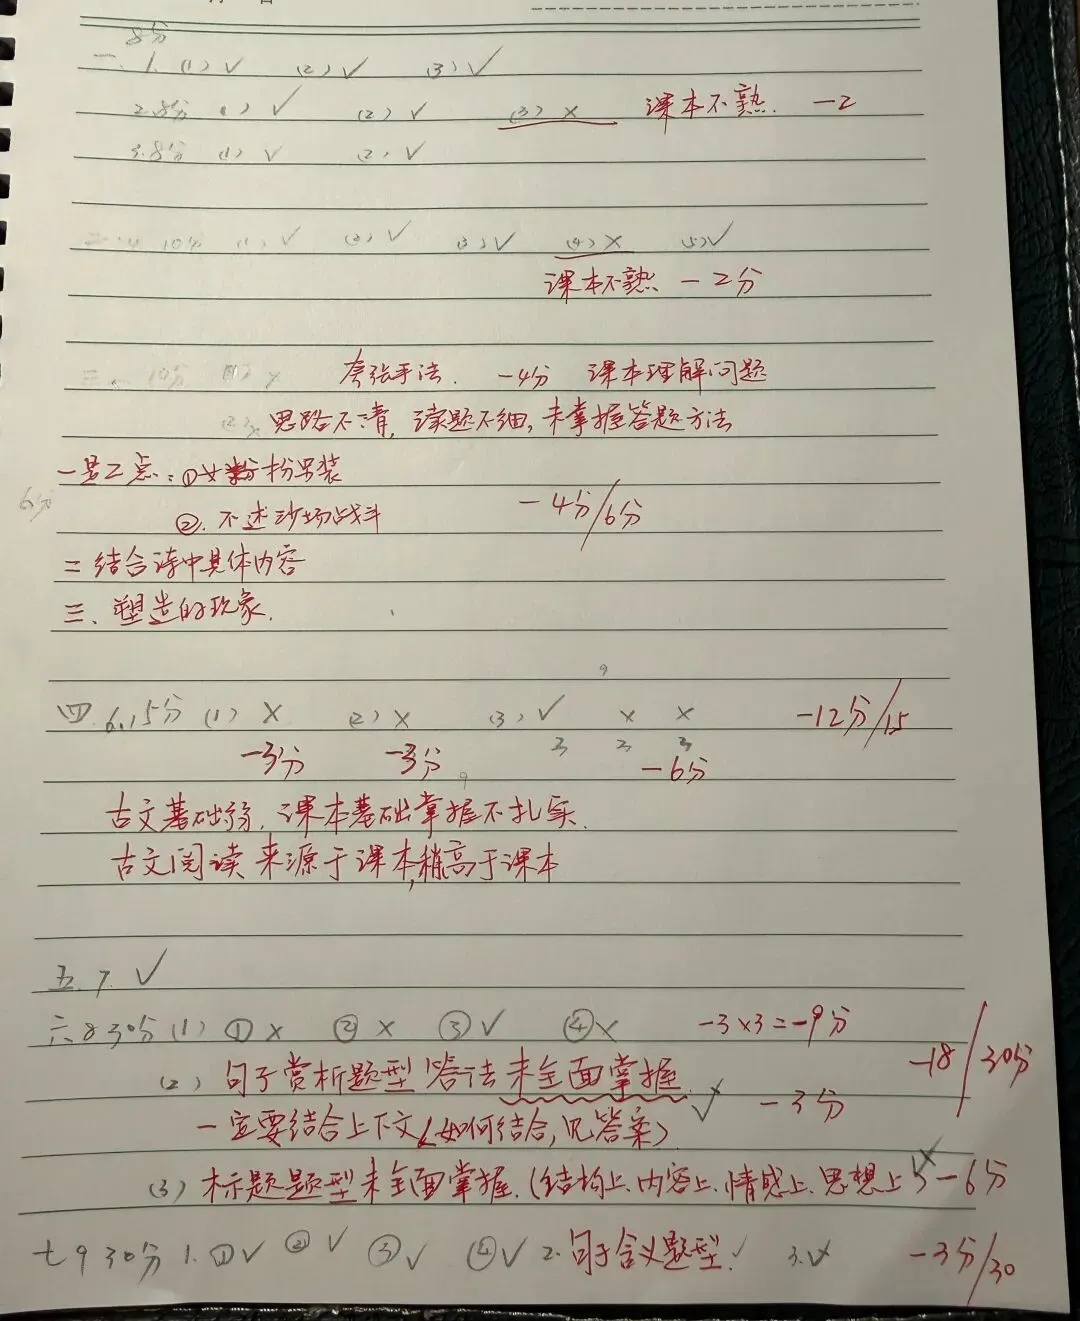 8分
一. 1. (1) ✓ (2) ✓ (3) ✓
2. 8分 (1) ✓ (2) ✓ (3) × 课本不熟. -2
3. 8分 (1) ✓ (2) ✓
二. 4 10分 (1) ✓ (2) ✓ (3) ✓ (4) × (5) ✓
课本不熟 -2分
三. 10分 × 夸张手法. -4分 课本理解问题
(2) × 思路不清, 读题不细, 未掌握答题方法
一是二点: ①女扮男装
6分 ②. 不述沙场战斗 -4分/6分
二 结合诗中具体内容
三、塑造的形象.
四. 6. 15分 (1) × (2) × (3) ✓ × × -12分/15
3 3 3
-3分 -3分 -6分
古文基础弱, 课本基础掌握不扎实.
古文阅读 来源于课本, 稍高于课本
五. 7. ✓
六 8 30分 (1) ① × ② × ③ ✓ ④ × -3×3=-9分
-18/30分
(2) 句子赏析题型 答法未全面掌握. -3分
一定要结合上下文(如何结合, 见答案)
(3) 标题题型未全面掌握. (结构上、内容上、情感上、思想上) -6分
七 9 30分 1. ① ✓ ② ✓ ③ ✓ ④ ✓ 2. 句子含义题型. ✓ 3. ✓ -3分/30